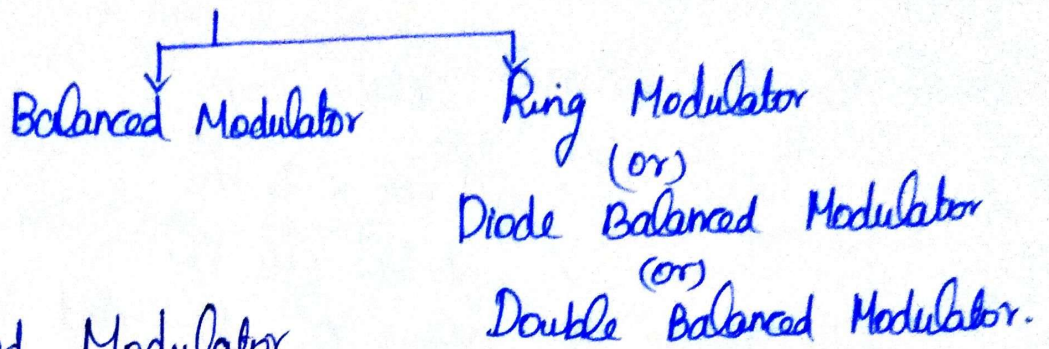 Balanced Modulator Ring Modulator
(or)
Diode Balanced Modulator
(or)
Double Balanced Modulator.
Modulator